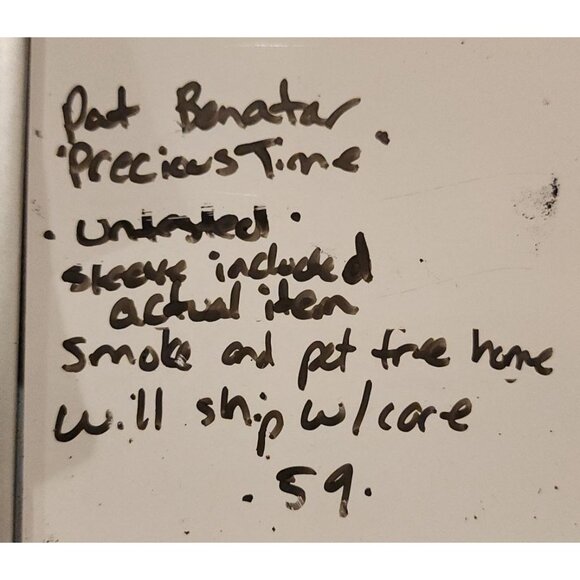 Pat Benatar
"Precious Time"
. untested .
sleeve included
actual item
smoke and pet free home
will ship w/care
. 59 .